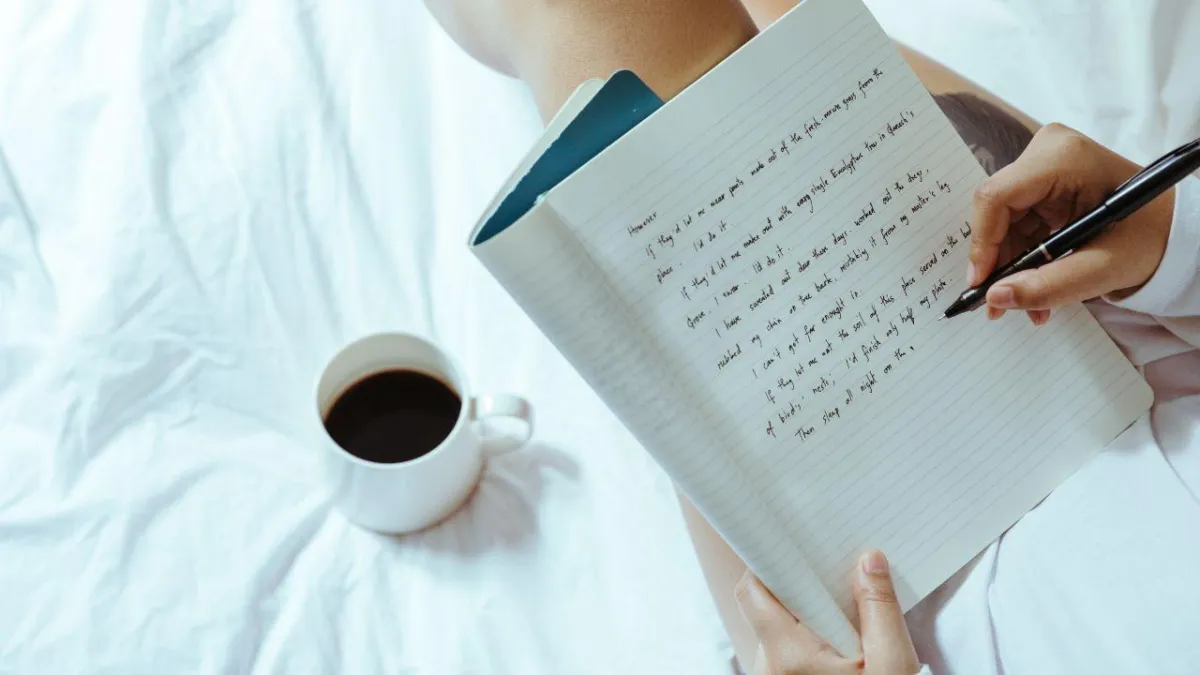 However
If they'd let me wear pants made out of the fresh-mown grass from the
place. I'd do it.
If they'd let me make out with every single Eucalyptus tree in Queen's
Grove, I swear. I'd do it.
I have sweated out dew these days. worked out the dregs,
rubbed my chin on the bark, mistaking it from my master's leg
I can't get far enough in.
If they let me eat the soil of this place served on the bed
of birds' nests, I'd finish only half my plate.
Then sleep all night on the